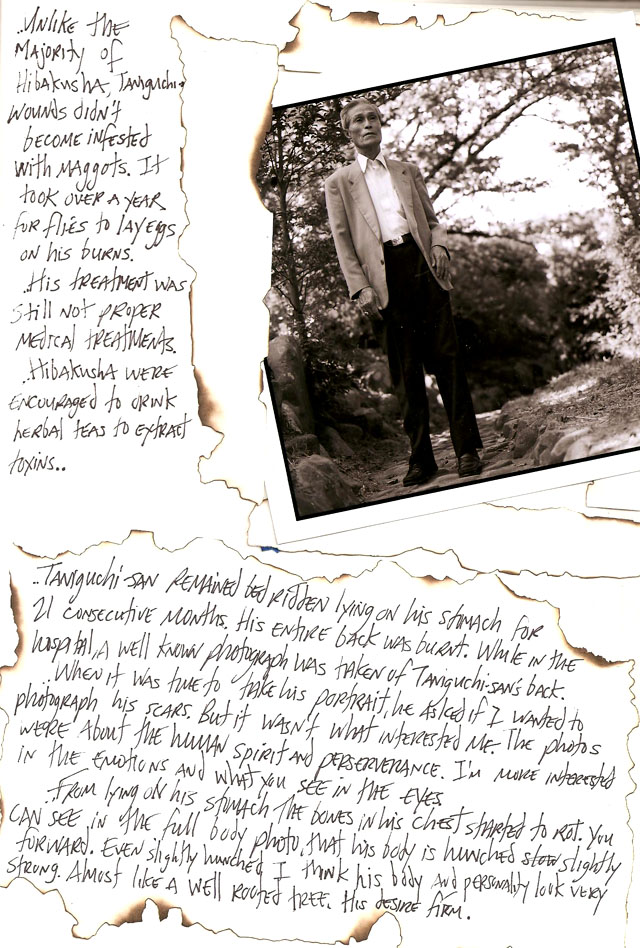 ..Unlike the
Majority of
Hibakusha, Taniguchi-
wounds didn't
become infested
with maggots. It
took over a year
for flies to lay eggs
on his burns.
..His treatment was
still not proper
medical treatments.
..Hibakusha were
encouraged to drink
herbal teas to extract
toxins..
..Taniguchi-san remained bed ridden lying on his stomach for
21 consecutive months. His entire back was burnt. While in the
hospital, a well known photograph was taken of Taniguchi-san's back.
..When it was time to take his portrait, he asked if I wanted to
photograph his scars. But it wasn't what interested me. The photos
were about the human spirit and perserverance. I'm more interested
in the emotions and what you see in the eyes
..From lying on his stomach the bones in his chest started to rot. You
can see in the full body photo, that his body is hunched slightly
forward. Even slightly hunched, I think his body and personality look very
strong. Almost like a well rooted tree. His desire firm.